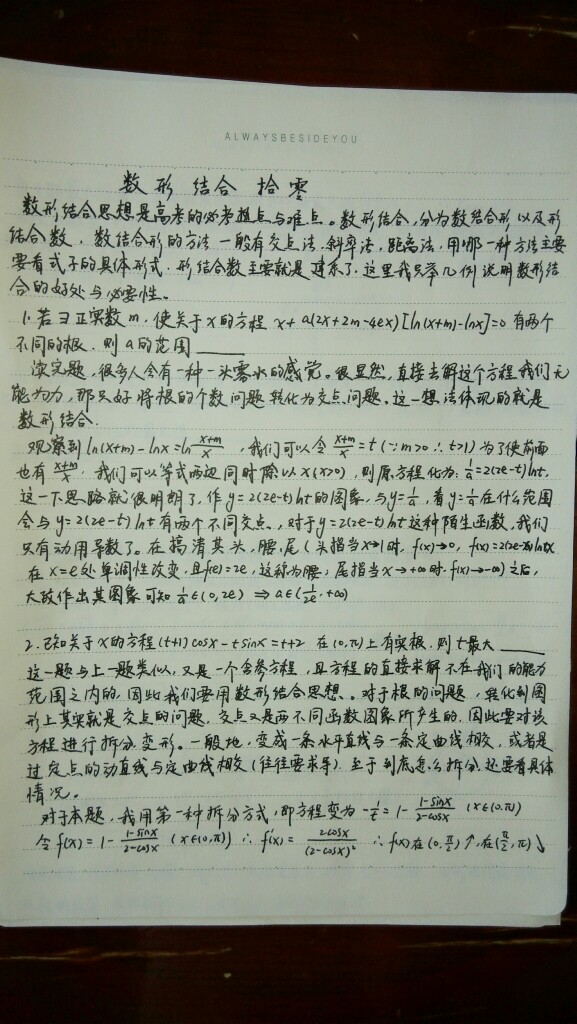 ALWAYSBESIDEYOU
数形结合 拾零
数形结合思想是高考的必考热点与难点。数形结合,分为数结合形以及形
结合数,数结合形的方法一般有交点法,斜率法,距离法,用哪一种方法主要
要看式子的具体形式,形结合数主要就是建系了,这里我只举几例说明数形结
合的好处与必要性。
1.若∃正实数m,使关于x的方程 x+a(2x+2m-4ex)[ln(x+m)-lnx]=0有两个
不同的根,则a的范围______
读完题,很多人会有一种一头雾水的感觉。很显然,直接去解这个方程我们无
能为力,那只好将根的个数问题转化为交点问题。这一想法体现的就是
数形结合.
观察到ln(x+m)-lnx=ln\frac{x+m}{x},我们可以令\frac{x+m}{x}=t(∵m>0∴t>1)为了使前面
也有\frac{x+m}{x},我们可以等式两边同时除以x(x>0),则原方程化为:\frac{1}{a}=2(2e-t)lnt,
这一下思路就很明朗了,作y=2(2e-t)lnt的图象,与y=\frac{1}{a},看y=\frac{1}{a}在什么范围
会与y=2(2e-t)lnt有两个不同交点。对于y=2(2e-t)lnt这种陌生函数,我们
只有动用导数了。在搞清其头,腰,尾(头指当x→1时,f(x)→0,f(x)=2(2e-x)lnx
在x=e处单调性改变,且f(e)=2e,这称为腰;尾指当x→+∞时,f(x)→-∞)之后,
大致作出其图象可知\frac{1}{a}∈(0,2e) ⇒ a∈(\frac{1}{2e},+∞)
2.已知关于x的方程(t+1)cosx-tsinx=t+2 在(0,π)上有实根,则t最大______
这一题与上一题类似,又是一个含参方程,且方程的直接求解不在我们的能力
范围之内的,因此我们要用数形结合思想。对于根的问题,转化到图
形上其实就是交点的问题,交点又是两不同函数图象所产生的,因此要对该
方程进行拆分,变形。一般地,变成一条水平直线与一条定曲线相交,或者是
过定点的动直线与定曲线相交(往往要求导).至于到底怎么拆分,还要看具体
情况。
对于本题,我用第一种拆分方式,即方程变为-\frac{1}{t}=1-\frac{1-sinx}{2-cosx} (x∈(0,π))
令f(x)=1-\frac{1-sinx}{2-cosx} (x∈(0,π)) ∴f'(x)=\frac{2cosx}{(2-cosx)^2} ∴f(x)在(0,\frac{π}{2})↑,在(\frac{π}{2},π)↓